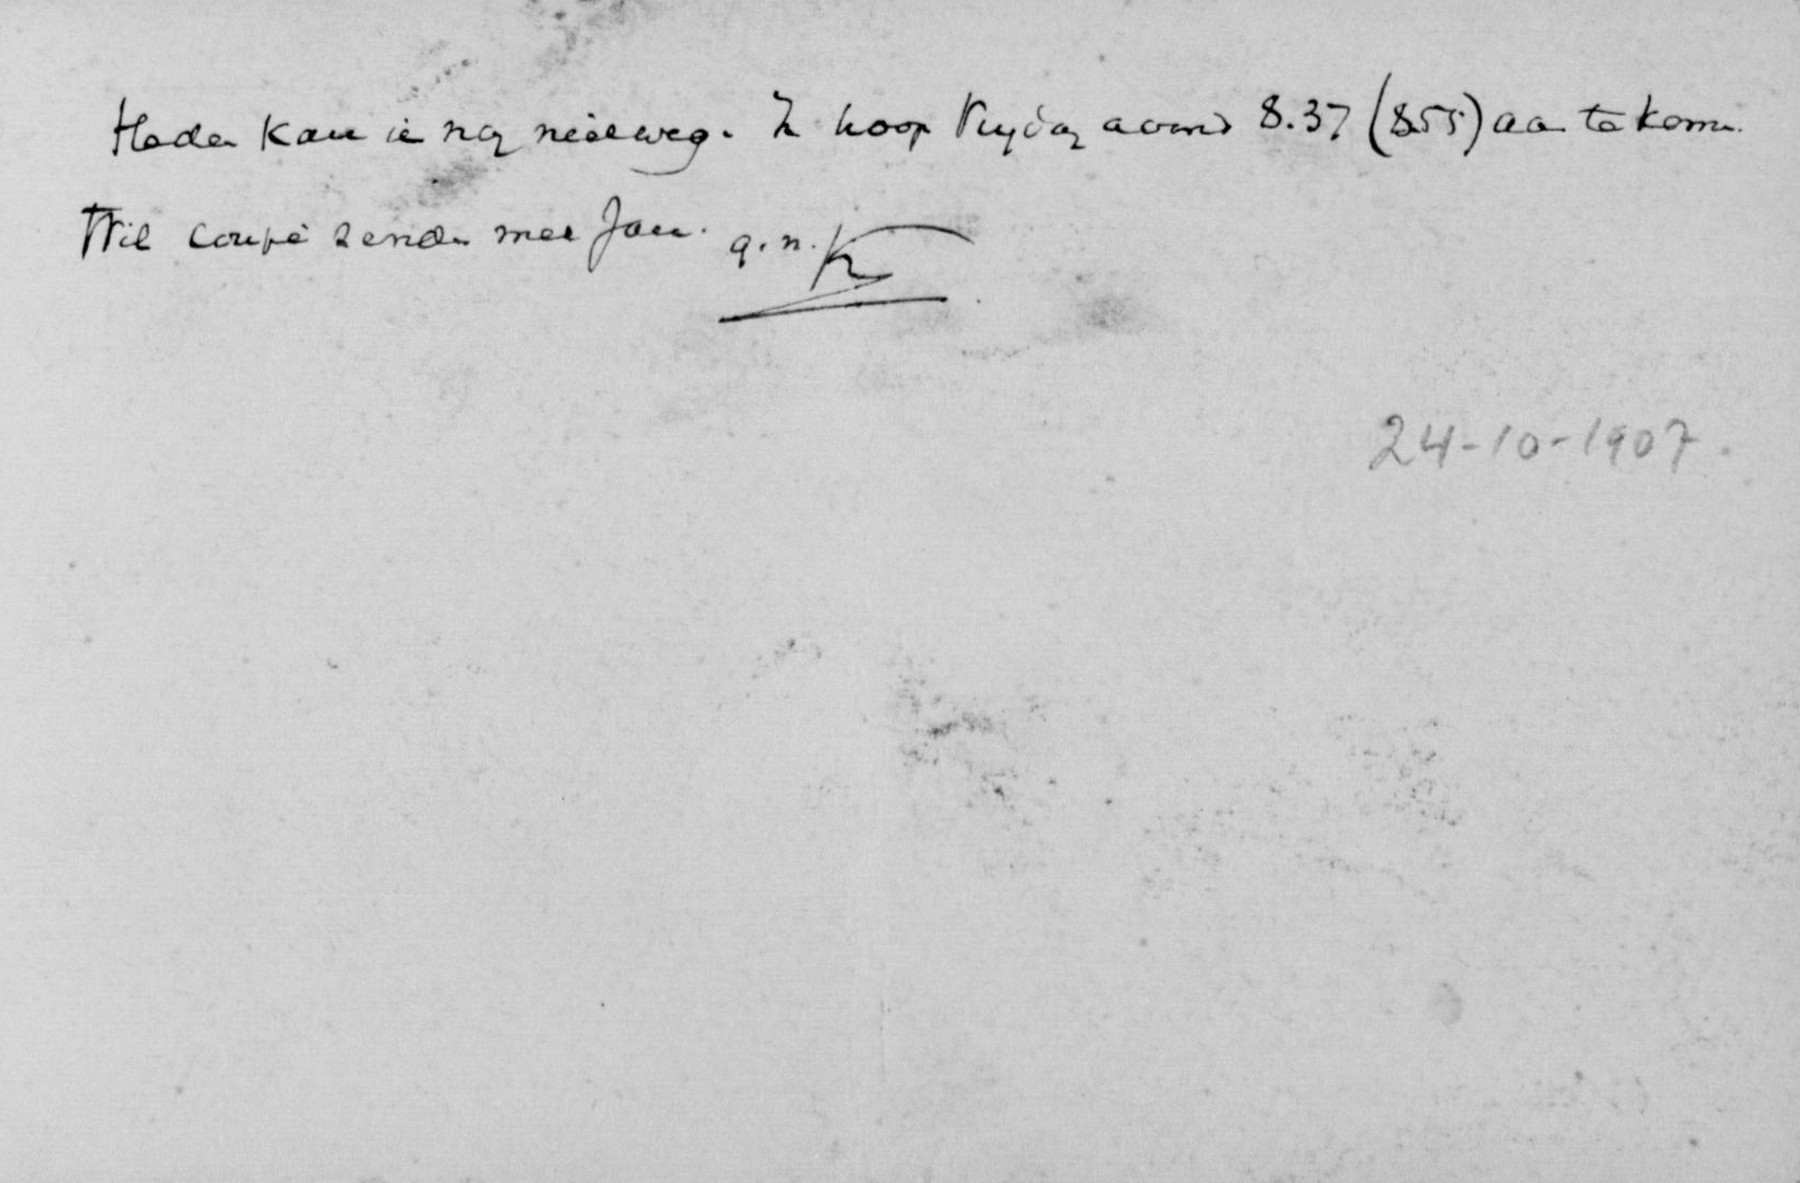 Heden kan ik nog niet weg. Ik hoop Vrijdag avond 8.37 (8.55) aan te komen.
Wil coupé zenden met Jan. q.n. K
24-10-1907.